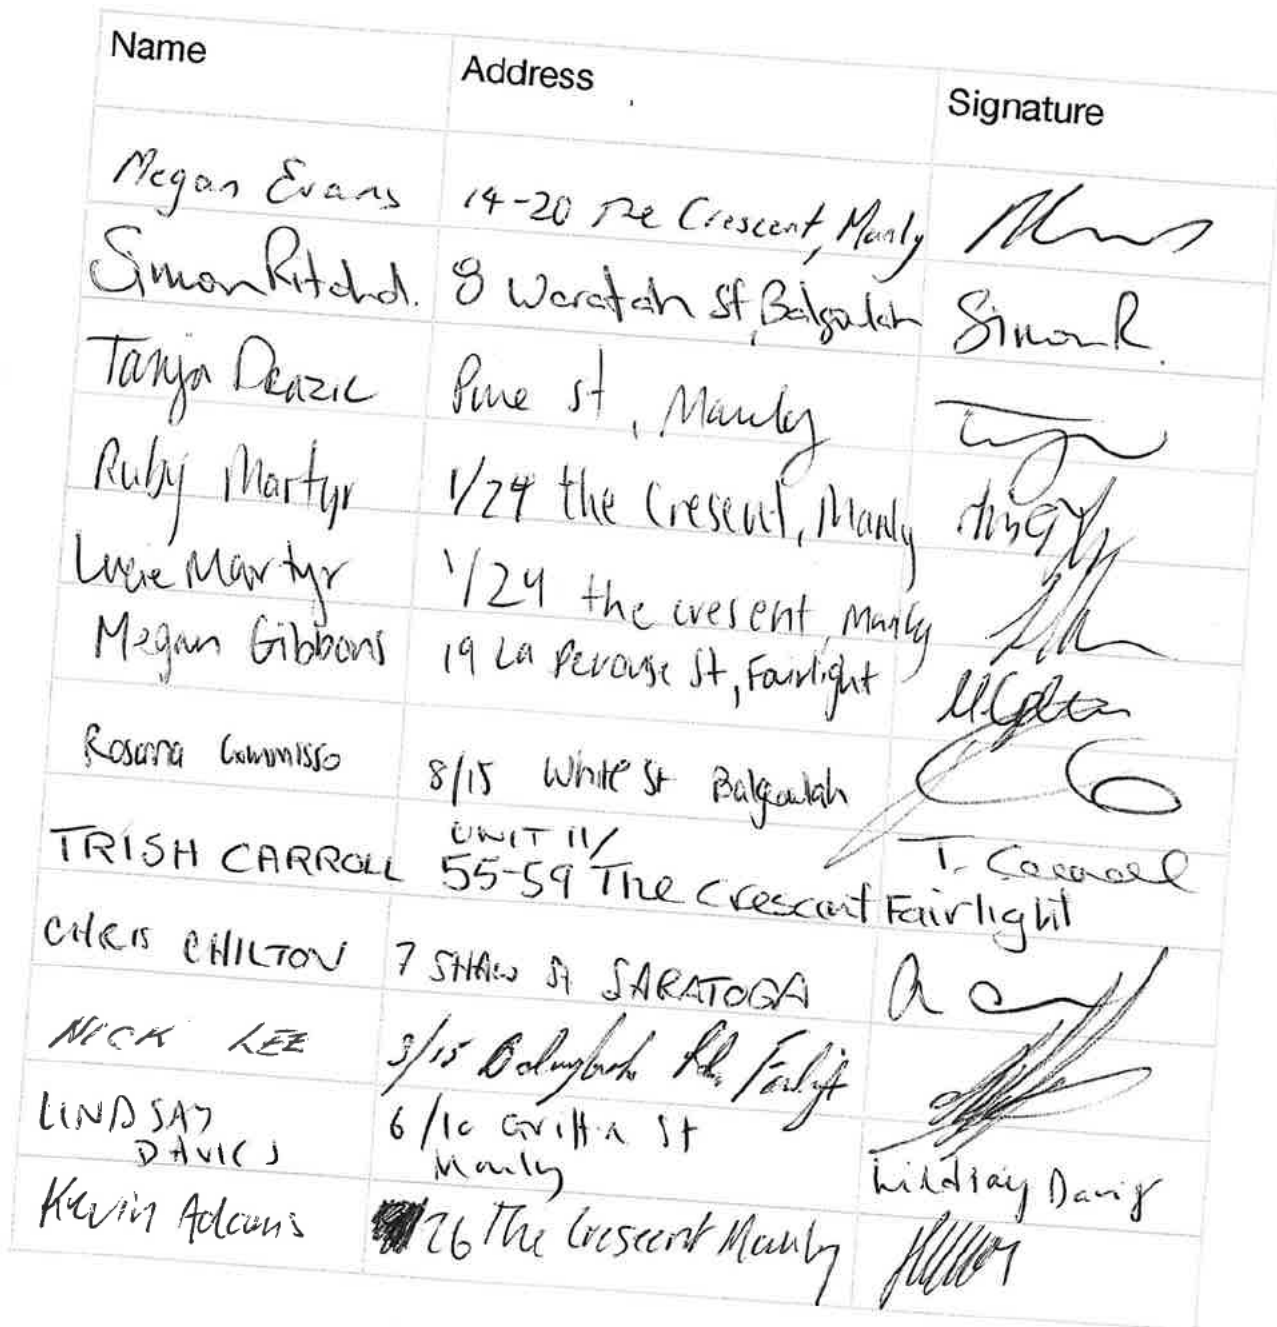 Name Address Signature
Megan Evans 14-20 The Crescent, Manly
Simon 8 Waratah St, Balgowlah Simon R.
Tanja Pine St, Manly
Ruby Martyr 1/24 the Cresent, Manly
Lucie Martyr 1/24 the cresent, Manly
Megan Gibbons 19 La Perouse St, Fairlight
Rosanna Commisso 8/15 White St Balgowlah
UNIT 11/
TRISH CARROLL 55-59 The Crescent Fairlight T. Carroll
CHRIS CHILTON 7 SHAW St SARATOGA
NICK LEE 3/15
LINDSAY 6/10 Griffin St
DAVIES Manly Lindsay Davies
Kevin Adams 26 The Crescent Manly